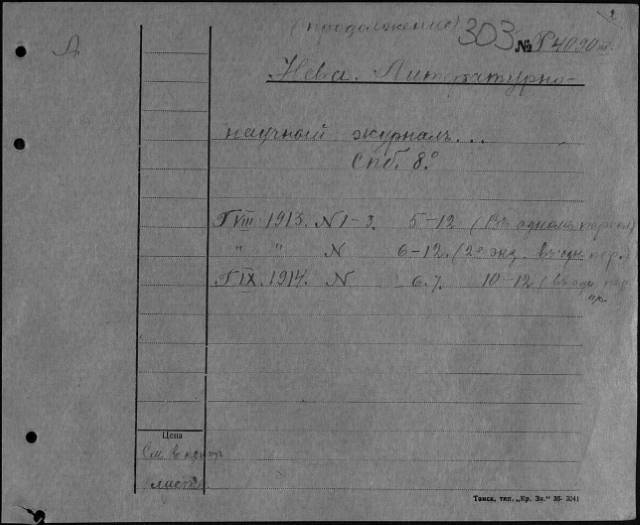 (продолжение) 303 № Р4090
Л
Нева. Литературно-
научный журналъ...
Спб. 8.°
Г VIII 1913. N 1-3. 5-12 (Въ одномъ
" " N 6-12. (2 экз. въ одн. пер.)
Г IX. 1914. N 6. 7. 10-12 (въ одн. пер.
Цена
См. в
Томск, тип. „Кр. Зн.“ 36- 3041